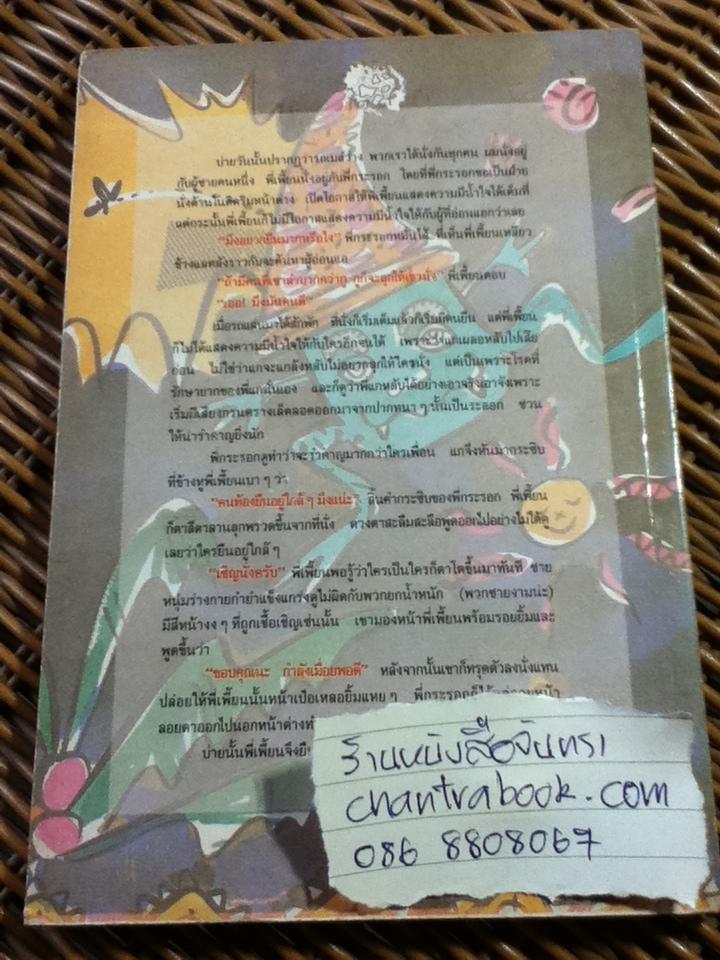 บ่ายวันนั้นปรากฏว่ารถเมล์ว่าง พวกเราได้นั่งกันทุกคน ผมนั่งอยู่
กับผู้ชายคนหนึ่ง พี่เพี้ยนนั่งอยู่กับพี่กระรอก โดยที่พี่กระรอกขอเป็นฝ่าย
นั่งด้านในติดริมหน้าต่าง เปิดโอกาสให้พี่เพี้ยนแสดงความมีน้ำใจได้เต็มที่
แต่กระนั้นพี่เพี้ยนก็ไม่มีโอกาสแสดงความมีน้ำใจให้กับผู้ที่อ่อนแอกว่าเลย
"มึงอยากยืนมากหรือไง" พี่กระรอกหมั่นไส้ ที่เห็นพี่เพี้ยนเหลียว
ซ้ายแลหลังราวกับจะค้นหาผู้อ่อนแอ
"ถ้ามีคนที่เขาลำบากกว่ากู กูก็จะลุกให้เขานั่ง" พี่เพี้ยนตอบ
"เออ! มึงมันคนดี"
เมื่อรถแล่นมาได้สักพัก ที่นั่งก็เริ่มเต็มแล้วก็เริ่มมีคนยืน แต่พี่เพี้ยน
ก็ไม่ได้แสดงความมีน้ำใจให้กับใครอีกจนได้ เพราะ
ก่อน ไม่ใช่ว่าแกจะแกล้งหลับไม่อยากลุกให้ใครนั่ง แต่เป็นเพราะโรคที่
รักษายากของพี่แกนั่นเอง และก็ดูว่าพี่แกหลับได้อย่างเอาจริงเอาจังเพราะ
เริ่มมีเสียงกรนครางเล็ดลอดออกมาจากปากหนา ๆ นั้นเป็นระลอก ชวน
ให้น่ารำคาญยิ่งนัก
พี่กระรอกดูท่าว่าจะรำคาญมากกว่าใครเพื่อน แกจึงหันมากระซิบ
ที่ข้างหูพี่เพี้ยนเบา ๆ ว่า
"คนท้องยืนอยู่ใกล้ ๆ มึงแน่ะ" สิ้นคำกระซิบของพี่กระรอก พี่เพี้ยน
ก็ตาลีตาลานลุกพรวดขึ้นจากที่นั่ง ดวงตาสะลึมสะลือพูดออกไปอย่างไม่ได้ดู
เลยว่าใครยืนอยู่ใกล้ ๆ
"เชิญนั่งครับ" พี่เพี้ยนพอรู้ว่าใครเป็นใครก็ตาโตขึ้นมาทันที ชาย
หนุ่มร่างกายกำยำแข็งแกร่งดูไม่ผิดกับพวกยกน้ำหนัก (พวกชายงามน่ะ)
มีสีหน้างง ๆ ที่ถูกเชื้อเชิญเช่นนั้น เขามองหน้าพี่เพี้ยนพร้อมรอยยิ้มและ
พูดขึ้นว่า
"ขอบคุณนะ กำลังเมื่อยพอดี" หลังจากนั้นเขาก็ทรุดตัวลงนั่งแทน
ปล่อยให้พี่เพี้ยนนั้นหน้าเป๋อเหลอยิ้มแหย ๆ พี่กระรอกก็
ลอยตาออกไปนอกหน้าต่าง
บ่ายนั้นพี่เพี้ยนจึง
ร้านหนังสือจันทรา
chantrabook.com
086 8808067